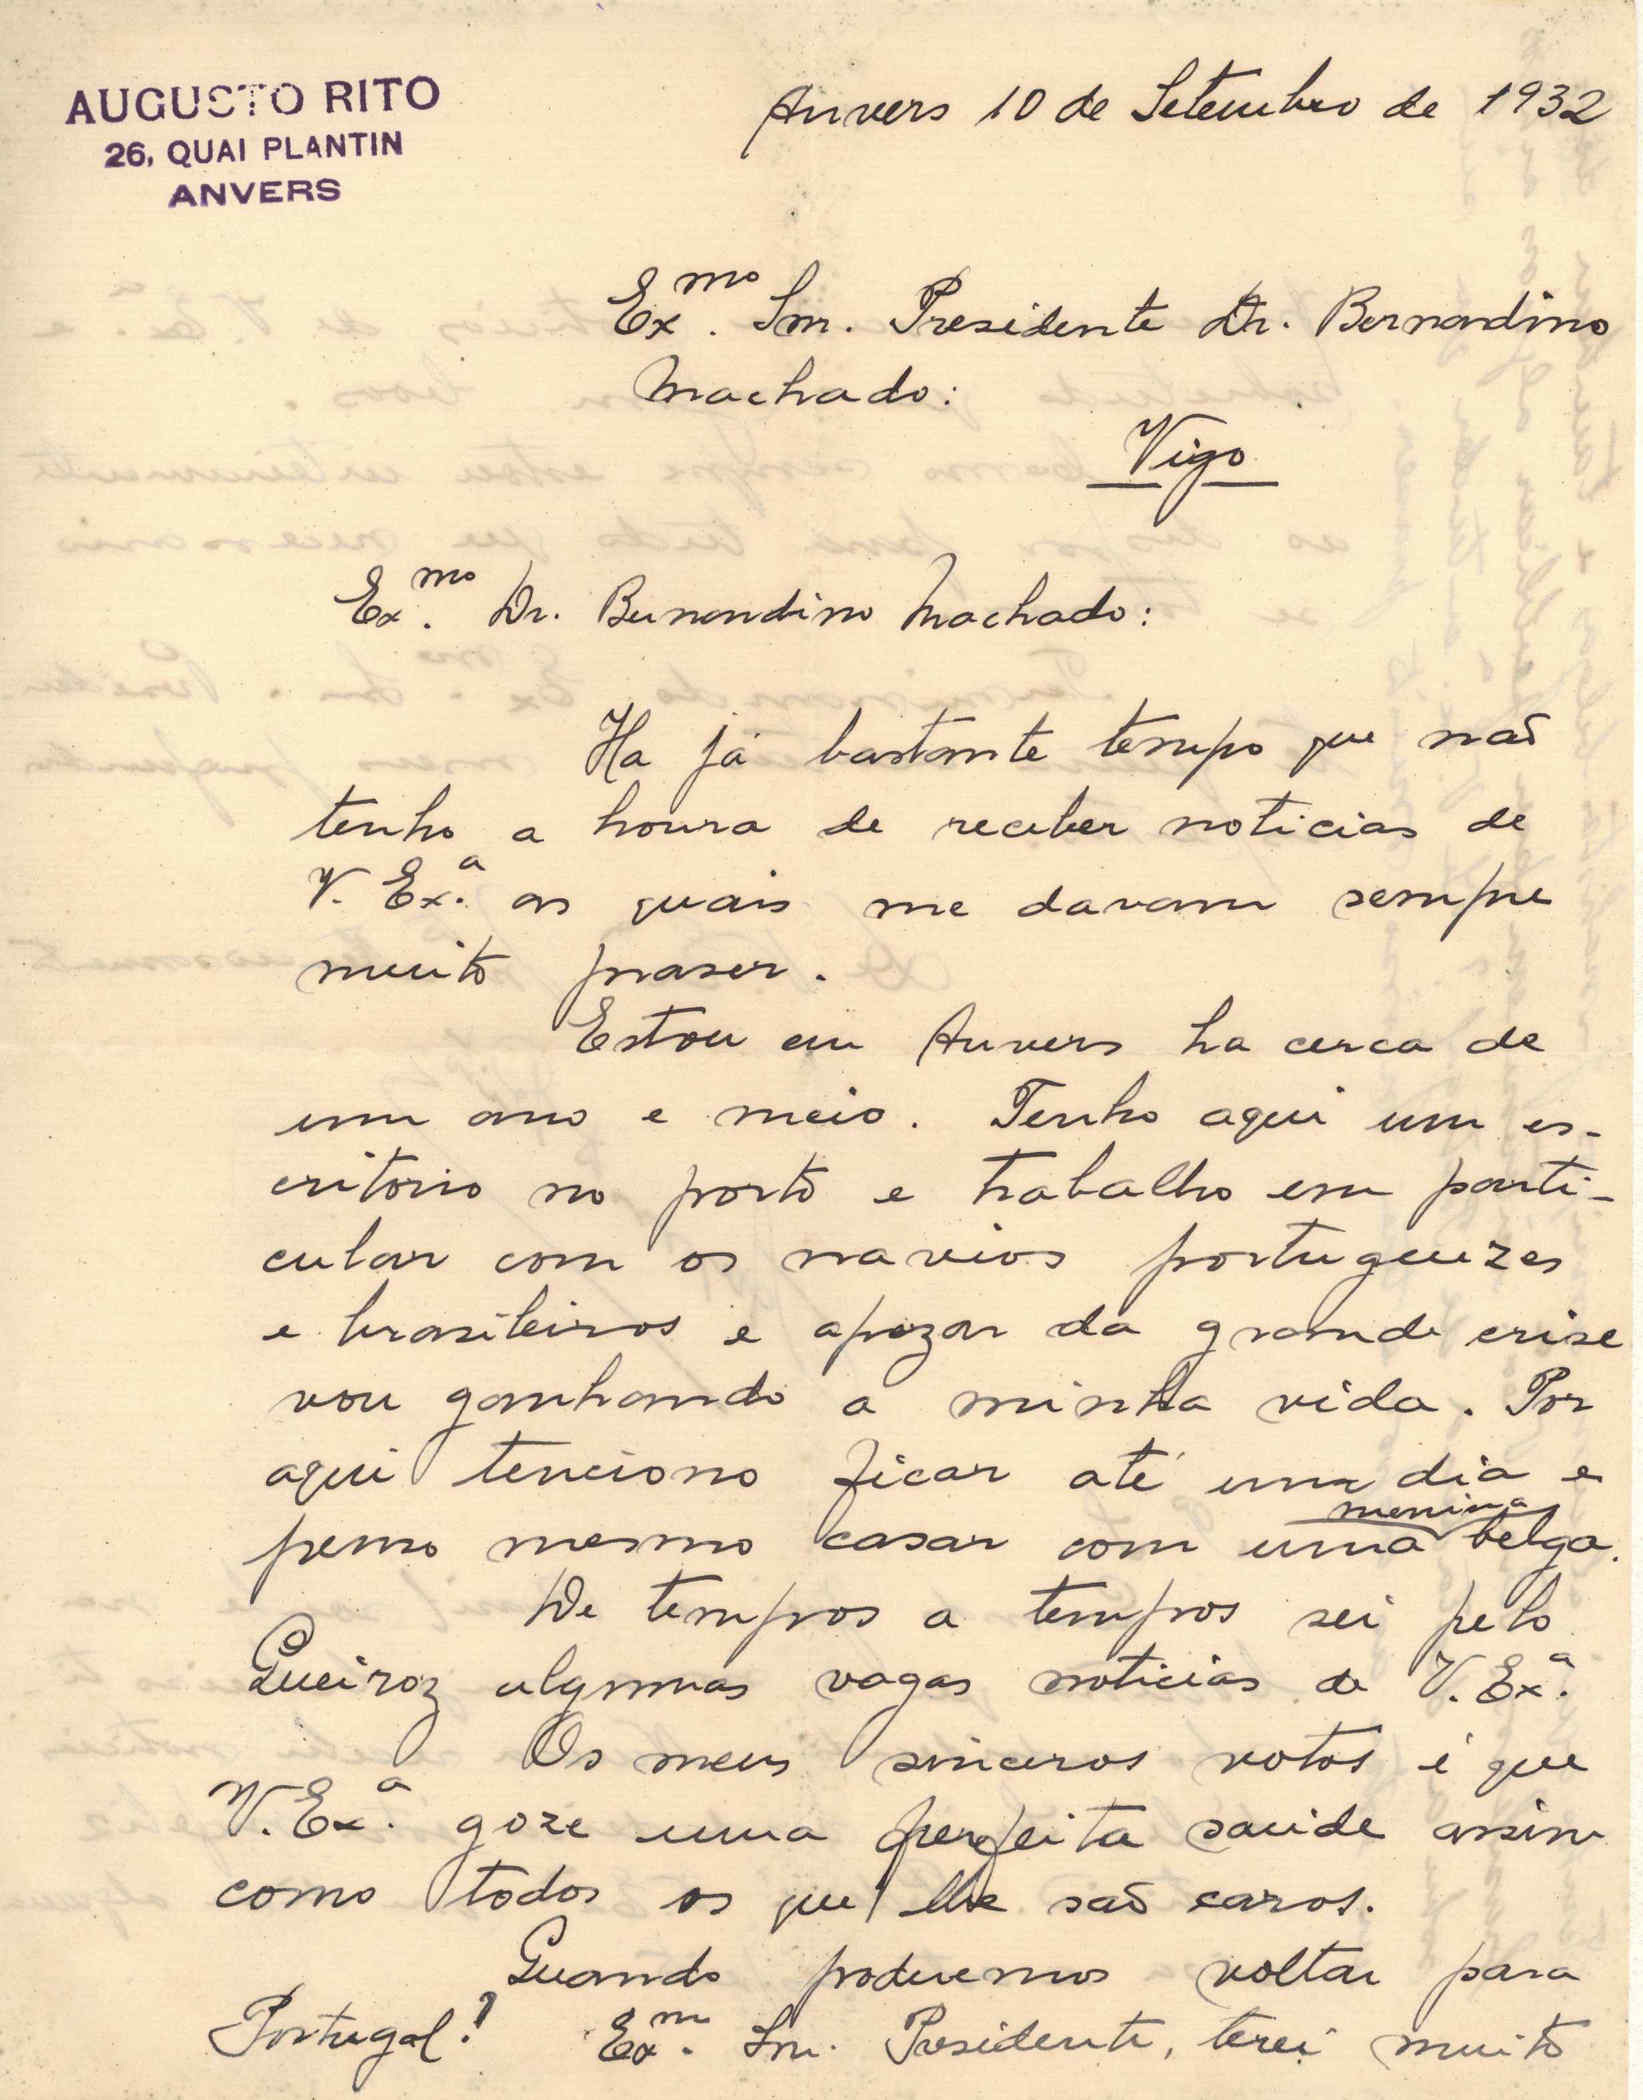 AUGUSTO RITO
26, QUAI PLANTIN
ANVERS
Anvers 10 de Setembro de 1932
Ex.mo Snr. Presidente Dr. Bernardino
Machado:
Vigo
Ex.mo Dr. Bernardino Machado:
Ha já bastante tempo que não
tenho a honra de receber noticias de
V. Ex.a as quais me davam sempre
muito praser.
Estou em Anvers ha cerca de
um ano e meio. Tenho aqui um es-
critorio no porto e trabalho em parti-
cular com os navios portuguezes
e brasileiros e apezar da grande crise
vou ganhando a minha vida. Por
aqui tenciono ficar até um dia e
penso mesmo casar com uma menina belga.
De tempos a tempos sei pelo
Queiroz algumas vagas noticias de V. Ex.a
Os meus sinceros votos é que
V. Ex.a goze uma perfeita saude assim
como todos os que lhe são caros.
Quando poderemos voltar para
Portugal? Ex.m Snr. Presidente, terei muito